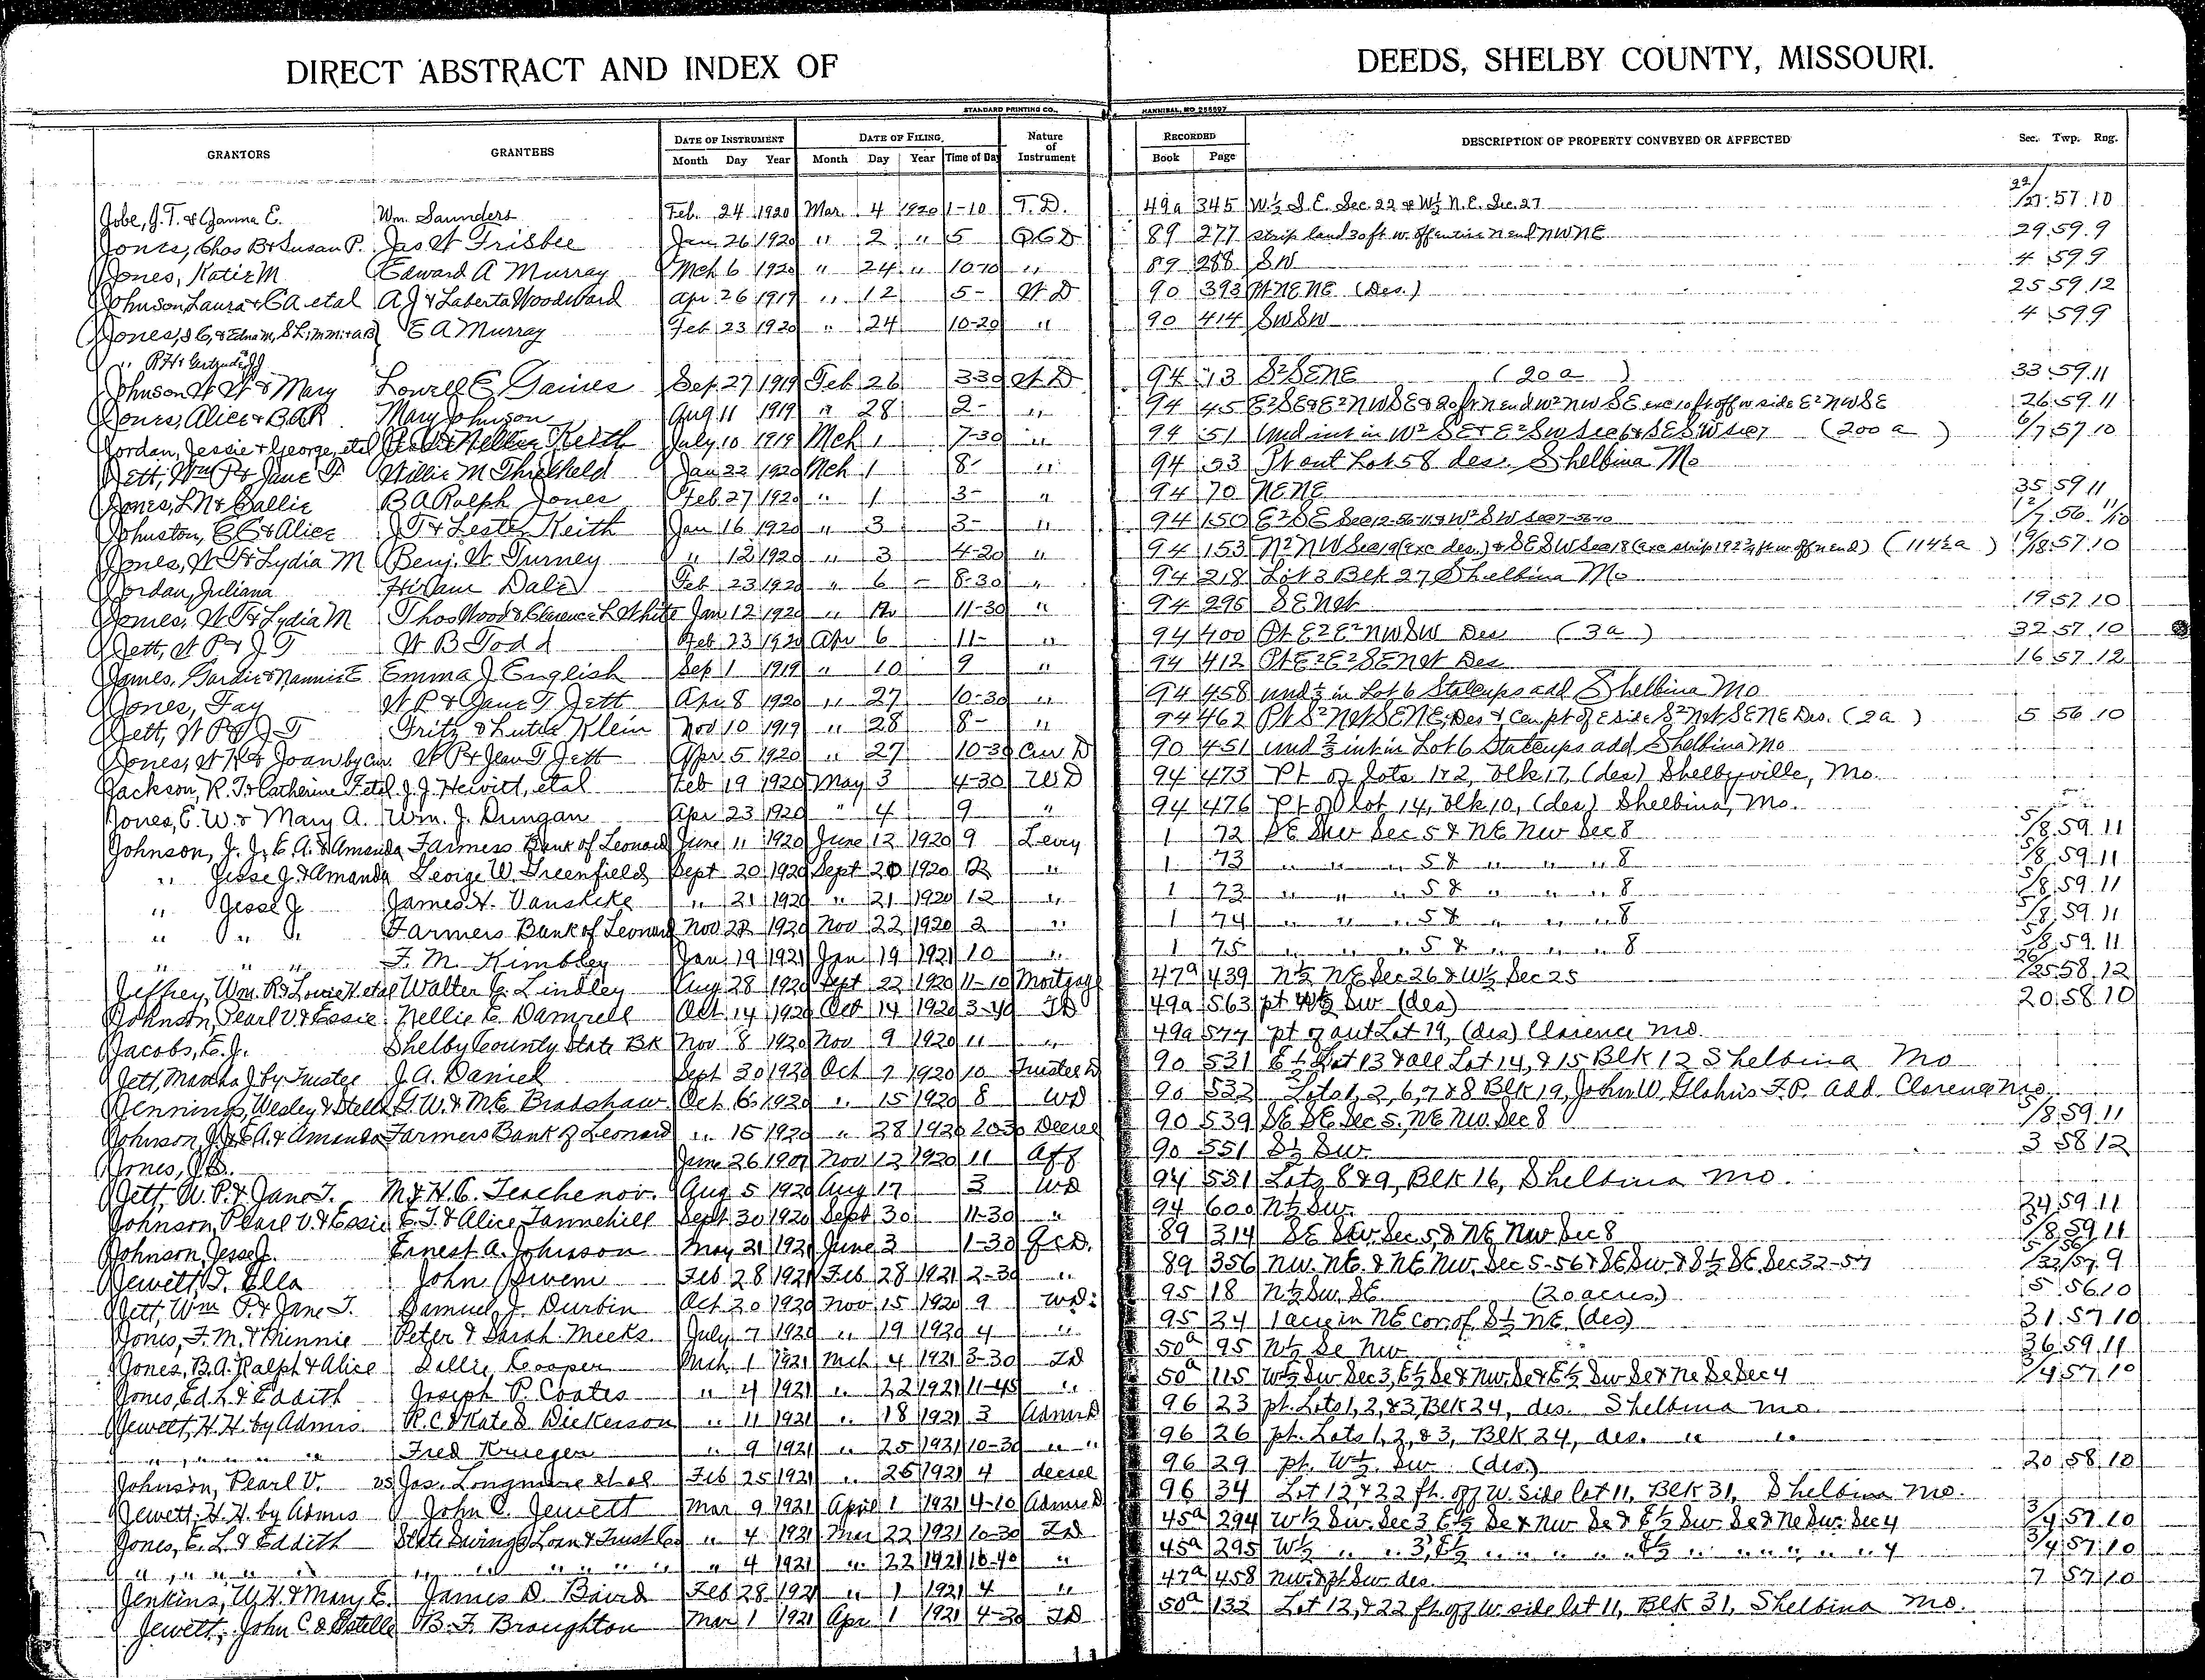 DIRECT ABSTRACT AND INDEX OF DEEDS, SHELBY COUNTY, MISSOURI.
STANDARD PRINTING CO., HANNIBAL, MO 255597
GRANTORS GRANTEES DATE OF INSTRUMENT DATE OF FILING Nature of Instrument RECORDED DESCRIPTION OF PROPERTY CONVEYED OR AFFECTED Sec. Twp. Rng.
Month Day Year Month Day Year Time of Day Book Page
Jobe, J. T. & Janna E. Wm. Saunders Feb. 24 1920 Mar. 4 1920 1-10 T.D. 49a 345 W½ S.E. Sec. 22 & W½ N.E. Sec. 27 22/27 57 10
Jones, Chas B & Susan P. Jas W Frisbee Jan 26 1920 " 2 " 5 QCD 89 277 strip land 30 ft w. off entire N end NWNE 29 59 9
Jones, Katie M Edward A Murray Mch 6 1920 " 24 " 10-10 " 89 288 SW 4 59 9
Johnson, Laura & CA etal A J & Laberta Woodward Apr 26 1919 " 12 5- W D 90 393 Pt NENE (Des.) 25 59 12
Jones, & Edna M, E A Murray Feb 23 1920 " 24 10-20 " 90 414 SWSW 4 59 9
" R H & Gertrude
Johnson W W & Mary Lowell E Gaines Sep 27 1919 Feb 26 3-30 W D 94 13 S²SENE (20 a) 33 59 11
Jones, Alice & BAR Mary Johnson Aug 11 1919 " 28 2- " 94 45 E²SE & E²NWSE & 20 ft N end W²NWSE exc 10 ft off w side E²NWSE 26 59 11
Jordan, Jessie & George, etal & Nellie Keith July 10 1919 Mch 1 7-30 " 94 51 Und int in W²SE & E²SW Sec 6 & SESW Sec 7 (200 a) 6/7 57 10
Jett, Wm P & Jane T Willie M Threlkeld Jan 22 1920 Mch 1 8- " 94 53 Pt out Lot 58 des. Shelbina Mo
Jones, L N & Sallie B A Ralph Jones Feb 27 1920 " 1 3- " 94 70 NENE 35 59 11
Johnston, C C & Alice J T & Lester Keith Jan 16 1920 " 3 3- " 94 150 E²SE Sec 12-56-11 & W²SW Sec 7-56-10 12/7 56 11/10
Jones, W T & Lydia M Benj. W Turney " 12 1920 " 3 4-20 " 94 153 N²NW Sec 19 (exc des.) & SESW Sec 18 (exc strip 192¾ ft w off N end) (114½ a) 19/18 57 10
Jordan, Juliana Hiram Dale Feb 23 1920 " 6 - 8-30 " 94 218 Lot 3 Blk 27 Shelbina Mo
Jones, W T & Lydia M Thos Wood & Clarence L White Jan 12 1920 " 11-30 " 94 296 SENW 19 57 10
Jett, W P & J T W B Todd Feb 23 1920 Apr 6 11- " 94 400 Pt E²E²NWSW Des (3a) 32 57 10
James, Gardie & Nannie E Emma J English Sep 1 1919 " 10 9 " 94 412 Pt E²E²SENW Des 16 57 12
Jones, Fay W P & Jane T Jett Apr 8 1920 " 27 10-30 " 94 458 und ⅓ in Lot 6 Stalcups add Shelbina Mo
Jett, W P & J T Fritz & Lutie Klein Nov 10 1919 " 28 8- " 94 462 Pt S²NWSENE; Des & Cen pt of E side S²NWSENE Des. (2a) 5 56 10
Jones, W H & Joan by Cur. W P & Jean T Jett Apr 5 1920 " 27 10-30 Cur D 90 451 und ⅔ int in Lot 6 Stalcups add Shelbina Mo
Jackson, R. T. & Catherine F. etal J. J. Hewitt, etal Feb 19 1920 May 3 4-30 WD 94 473 Pt of lots. 1 & 2, blk 17, (des) Shelbyville, Mo.
Jones, E. W. & Mary A. Wm. J. Dungan Apr 23 1920 " 4 9 " 94 476 Pt of lot 14, blk 10, (des) Shelbina, Mo.
Johnson, J. J., E. A. & Amanda Farmers Bank of Leonard June 11 1920 June 12 1920 9 Levy 1 72 SE SW Sec 5 & NE NW Sec 8 5/8 59 11
" Jesse J. & Amanda George W. Greenfield Sept 20 1920 Sept 20 1920 12 " 1 73 " " " 5 & " " " 8 5/8 59 11
" Jesse J. James H. Vanskike " 21 1920 " 21 1920 12 " 1 73 " " " 5 & " " " 8 5/8 59 11
" " " Farmers Bank of Leonard Nov 22 1920 Nov 22 1920 2 " 1 74 " " " 5 & " " " 8 5/8 59 11
" " " F. M. Kimbley Jan 19 1921 Jan 19 1921 10 " 1 75 " " " 5 & " " " 8 5/8 59 11
Jeffrey, Wm. R. & Lowie H. etal Walter C. Lindley Aug 28 1920 Sept 22 1920 11-10 Mortgage 47a 439 N½ NE Sec 26 & W½ Sec 25 26/25 58 12
Johnson, Pearl V. & Essie Nellie E. Damrell Oct 14 1920 Oct 14 1920 3-40 TD 49a 563 pt W½ SW (des) 20 58 10
Jacobs, E. J. Shelby County State Bk Nov 8 1920 Nov 9 1920 11 " 49a 577 pt of out Lot 19, (des) Clarence Mo.
Jett, Martha J by Trustee J. A. Daniel Sept 30 1920 Oct 7 1920 10 Trustee D 90 531 E½ Lot 13 & all Lot 14, & 15 Blk 12 Shelbina Mo
Jennings, Wesley & Stella G. W. & M E. Bradshaw Oct 6 1920 " 15 1920 8 WD 90 532 Lots 1, 2, 6, 7 & 8 Blk 19, John W. F.P. add. Clarence Mo.
Johnson, J. J. E. A. & Amanda Farmers Bank of Leonard " 15 1920 " 28 1920 Decree 90 539 SE SE Sec 5, NE NW Sec 8 5/8 59 11
Jones, J. B. June 26 1907 Nov 12 1920 11 Aff 90 551 S½ SW 3 58 12
Jett, W. P. & Jane T. M & H. C. Teachenor. Aug 5 1920 Aug 17 3 WD 94 551 Lots 8 & 9, Blk 16, Shelbina Mo.
Johnson, Pearl V. & Essie E. T. & Alice Tannehill Sept 30 1920 Sept 30 11-30 " 94 600 N½ SW. 24 59 11
Johnson, Jesse J. Ernest A. Johnson May 21 1921 June 3 1-30 Q.C.D. 89 314 SE SW. Sec. 5, & NE NW Sec 8 5/8 59 11
Jewett, T. Ella John Bivens Feb 28 1921 Feb 28 1921 2-30 " 89 356 NW. NE. & NE NW. Sec 5-56 & SE SW. & S½ SE. Sec 32-57 5/32 56/57 9
Jett, Wm P. & Jane T. Samuel J. Durbin Oct 20 1920 Nov 15 1920 9 WD: 95 18 N½ SW. SE (20 acres) 5 56 10
Jones, F. M. & Minnie Peter & Sarah Meeks. July 7 1920 " 19 1920 4 " 95 24 1 acre in NE cor. of S½ NE. (des) 31 57 10
Jones, B. A. Ralph & Alice Sallie Cooper Mch 1 1921 Mch 4 1921 3-30 TD 50a 95 N½ SE NW 36 59 11
Jones, Ed L. & Eddith Joseph P. Coates " 4 1921 " 22 1921 11-45 " 50a 115 W½ SW Sec 3, E½ SE & NW. SE & E½ SW SE & NE SE Sec 4 3/4 57 10
Jewett, H. H. by Admrs R. C. & Kate S. Dickerson " 11 1921 " 18 1921 3 Admr D 96 23 pt. Lots 1, 2, & 3, Blk 24, des. Shelbina Mo.
" " " " Fred Krueger " 9 1921 " 25 1921 10-30 " " 96 26 pt. Lots 1, 2, & 3, Blk 24, des. " "
Johnson, Pearl V. vs Jas. Longmire et al Feb 25 1921 " 26 1921 4 decree 96 29 pt. W½. SW (des) 20 58 10
Jewett, H. H. by Admrs John C. Jewett Mar 9 1921 April 1 1921 4-10 Admrs D 96 34 Lot 12, & 22 ft. off W. side lot 11, Blk 31, Shelbina Mo.
Jones, E. L. & Eddith State Savings Loan & Trust Co " 4 1921 Mar 22 1921 10-30 TD 45a 294 W½ SW. Sec 3 E½ SE & NW. SE & E½ SW. SE & NE SW. Sec 4 3/4 57 10
" " " " " " " " " 4 1921 " 22 1921 10-40 " 45a 295 W½ " " 3, E½ " " " " " E½ " " " " " " 4 3/4 57 10
Jenkins, W. H. & Mary E. James D. Baird Feb 28 1921 " 1 1921 4 " 47a 458 NW. & pt SW. des. 7 57 10
Jewett, John C. & Estelle B. F. Broughton Mar 1 1921 Apr 1 1921 4-30 TD 50a 132 Lot 12, & 22 ft. off W. side lot 11, Blk 31, Shelbina Mo.